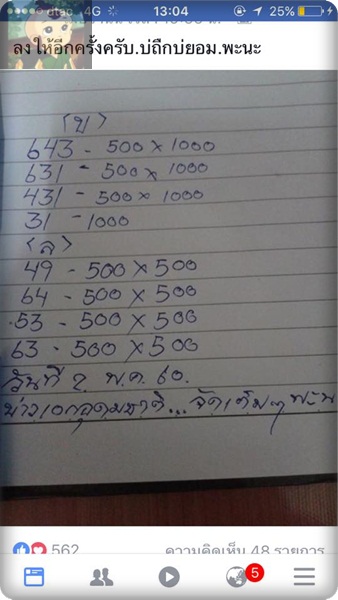 dtac 4G 13:04 25%
ลงให้อีกครั้งครับ.บ่ถึกบ่ยอม.พะนะ
(บ)
643 - 500 x 1000
631 - 500 x 1000
431 - 500 x 1000
31 - 1000
(ล)
49 - 500 x 500
64 - 500 x 500
53 - 500 x 500
63 - 500 x 500
วันที่ 2 พ.ค. 60.
จัดเต็มๆ พะนะ
562 ความคิดเห็น 48 รายการ
5